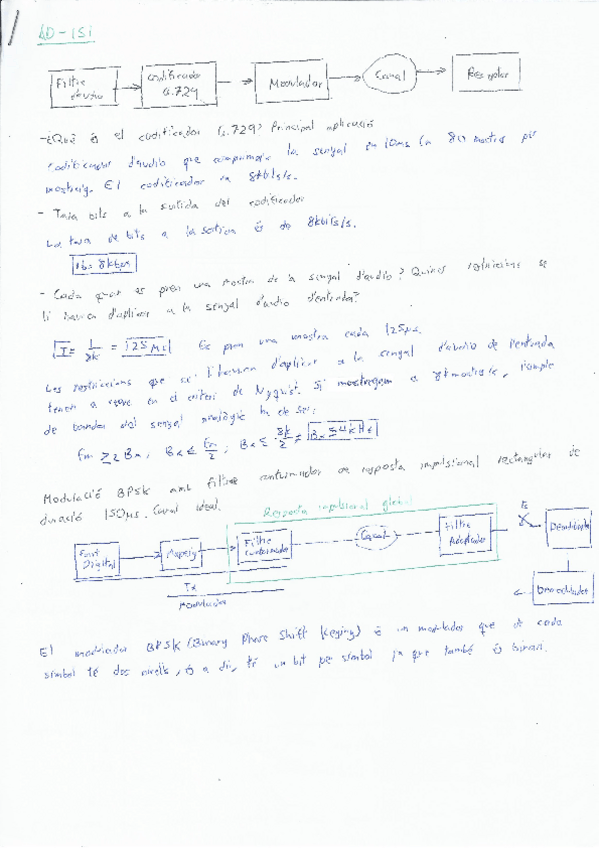 AD-ISI
Filtre d'entrada Codificador G.729 Modulador Canal Receptor
- ¿Què és el codificador G.729? Principal aplicació
Codificador d'àudio que comprimeix la senyal en 10ms 80 mostres per
mostreig. El codificador va 8kbits/s.
- Taxa bits a la sortida del codificador
La taxa de bits a la sortida és de 8kbits/s.
Rb= 8kbps
- Cada quan es pren una mostra de la senyal d'audio? Quines restriccions se
li hauria d'aplicar a la senyal d'audio d'entrada?
T = 1/8k = 125µs Es pren una mostra cada 125µs.
Les restriccions que se li hauria d'aplicar a la senyal d'àudio de l'entrada
tenen a veure en el criteri de Nyquist. Si mostregem a 8kmostres/s, l'ample
de banda del senyal analògic ha de ser:
Fm ≥ 2Bx; Bx ≤ Fm/2; Bx ≤ 8k/2 = Bx ≤ 4kHz
Modulació BPSK amb filtre conformador de resposta impulsional rectangular de
duració 150µs. Canal ideal.
Resposta impulsional global
Font Digital Mapeig Filtre Conformador Canal Filtre Adaptador
Tx
Modulador
Demodulador
El modulador BPSK (Binary Phase Shift Keying) és un modulador que de cada
símbol té dos nivells, és a dir, té un bit per símbol ja que també és binari.